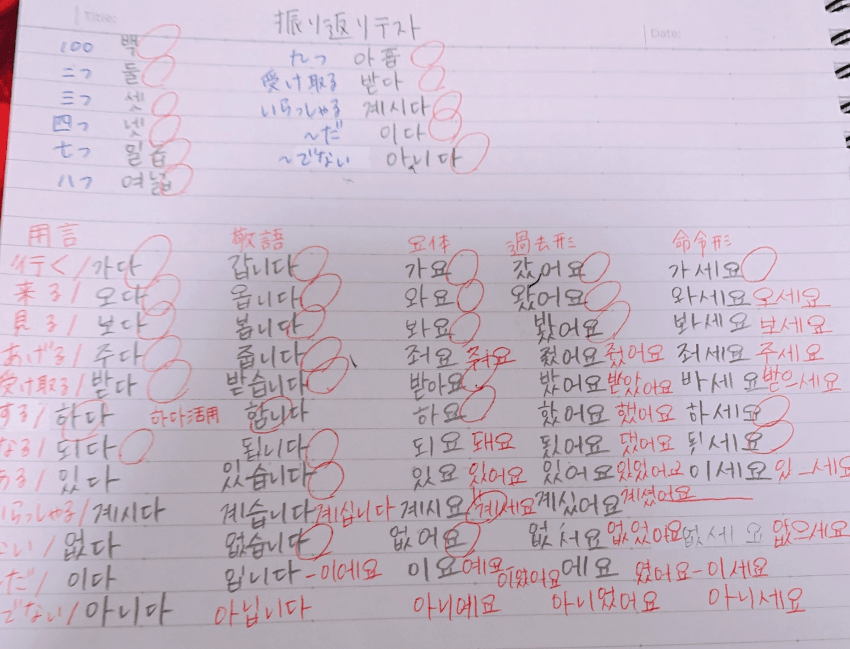 Title:
振り返りテスト
Date:
100 백 九つ 아홉
二つ 둘 受け取る 받다
三つ 셋 いらっしゃる 계시다
四つ 넷 ~だ 이다
七つ 일곱 ~でない 아니다
八つ 여덟
用言 敬語 요体 過去形 命令形
行く/가다 갑니다 가요 갔어요 가세요
来る/오다 옵니다 와요 왔어요 와세요 오세요
見る/보다 봅니다 봐요 봤어요 봐세요 보세요
あげる/주다 줍니다 죄요 줘요 줬어요 줬어요 죄세요 주세요
受け取る/받다 받습니다 받아요 받어요 받았아요 바세요 받으세요
する/하다 하다活用 합니다 하요 핬어요 했어요 하세요
なる/되다 됩니다 되요 돼요 됬어요 됐어요 되세요
ある/있다 있습니다 있요 있어요 있어요 있었어요 이세요 있-세요
いらっしゃる/계시다 계습니다 계십니다 계시요 계세요 계싰어요 계셨어요
ない/없다 없습니다 없어요 없서요 없었어요 없세요 없으세요
だ/ 이다 입니다 -이에요 이요 예요 이었어요 에요 였어요 -이세요
でない/아니다 아닙니다 아니예요 아니었어요 아니세요